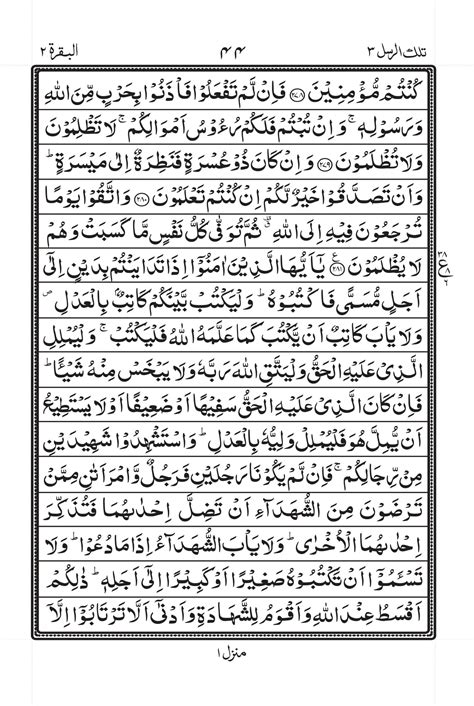 تلك الرسل ٣ ٤٤ البقرة ٢
كُنْتُمْ مُّؤْمِنِيْنَ ﴿۲۷۸﴾ فَاِنْ لَّمْ تَفْعَلُوْا فَاْذَنُوْا بِحَرْبٍ مِّنَ اللّٰهِ
وَرَسُوْلِهٖ ۚ وَاِنْ تُبْتُمْ فَلَكُمْ رُءُوْسُ اَمْوَالِكُمْ ۚ لَا تَظْلِمُوْنَ
وَلَا تُظْلَمُوْنَ ﴿۲۷۹﴾ وَاِنْ كَانَ ذُوْ عُسْرَةٍ فَنَظِرَةٌ اِلٰى مَيْسَرَةٍ ؕ
وَاَنْ تَصَدَّقُوْا خَيْرٌ لَّكُمْ اِنْ كُنْتُمْ تَعْلَمُوْنَ ﴿۲۸۰﴾ وَاتَّقُوْا يَوْمًا
تُرْجَعُوْنَ فِيْهِ اِلَى اللّٰهِ ۗ ثُمَّ تُوَفّٰى كُلُّ نَفْسٍ مَّا كَسَبَتْ وَهُمْ
لَا يُظْلَمُوْنَ ﴿۲۸۱﴾ يٰۤاَيُّهَا الَّذِيْنَ اٰمَنُوْۤا اِذَا تَدَايَنْتُمْ بِدَيْنٍ اِلٰۤى
اَجَلٍ مُّسَمًّى فَاكْتُبُوْهُ ؕ وَلْيَكْتُبْ بَّيْنَكُمْ كَاتِبٌۢ بِالْعَدْلِ ۪
وَلَا يَاْبَ كَاتِبٌ اَنْ يَّكْتُبَ كَمَا عَلَّمَهُ اللّٰهُ فَلْيَكْتُبْ ۚ وَلْيُمْلِلِ
الَّذِيْ عَلَيْهِ الْحَقُّ وَلْيَتَّقِ اللّٰهَ رَبَّهٗ وَلَا يَبْخَسْ مِنْهُ شَيْـًٔا ؕ
فَاِنْ كَانَ الَّذِيْ عَلَيْهِ الْحَقُّ سَفِيْهًا اَوْ ضَعِيْفًا اَوْ لَا يَسْتَطِيْعُ
اَنْ يُّمِلَّ هُوَ فَلْيُمْلِلْ وَلِيُّهٗ بِالْعَدْلِ ؕ وَاسْتَشْهِدُوْا شَهِيْدَيْنِ
مِنْ رِّجَالِكُمْ ۚ فَاِنْ لَّمْ يَكُوْنَا رَجُلَيْنِ فَرَجُلٌ وَّامْرَاَتٰنِ مِمَّنْ
تَرْضَوْنَ مِنَ الشُّهَدَآءِ اَنْ تَضِلَّ اِحْدٰىهُمَا فَتُذَكِّرَ
اِحْدٰىهُمَا الْاُخْرٰى ؕ وَلَا يَاْبَ الشُّهَدَآءُ اِذَا مَا دُعُوْا ؕ وَلَا
تَسْـَٔمُوْۤا اَنْ تَكْتُبُوْهُ صَغِيْرًا اَوْ كَبِيْرًا اِلٰۤى اَجَلِهٖ ؕ ذٰلِكُمْ
اَقْسَطُ عِنْدَ اللّٰهِ وَاَقْوَمُ لِلشَّهَادَةِ وَاَدْنٰۤى اَلَّا تَرْتَابُوْۤا اِلَّاۤ
منزل ١